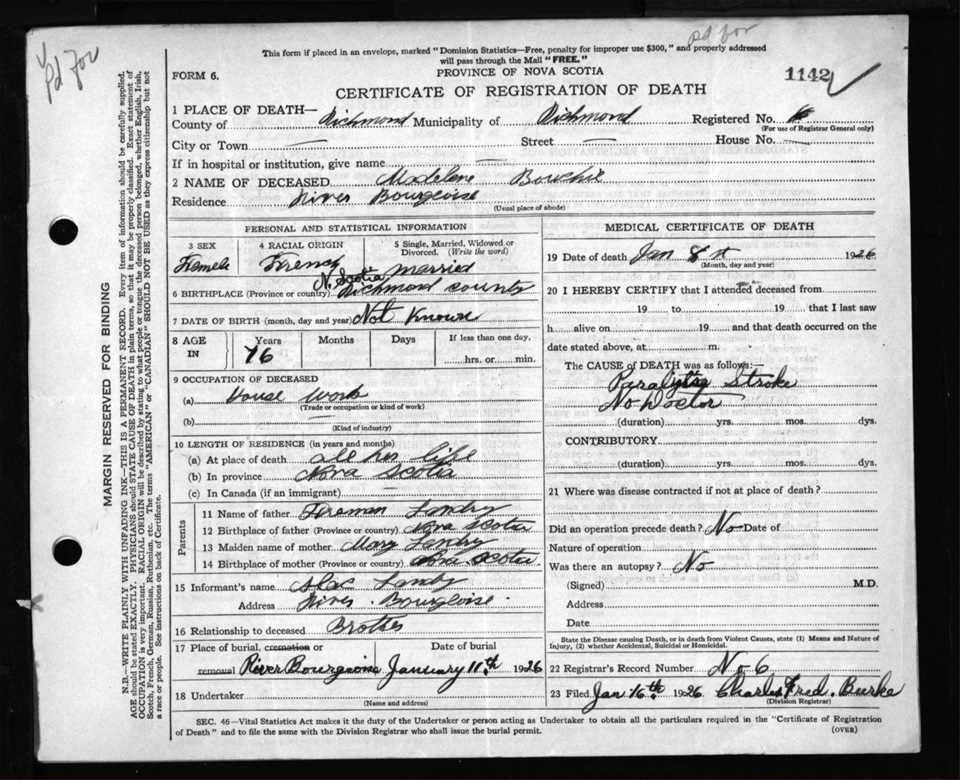 pd for
pd for
This form if placed in an envelope, marked "Dominion Statistics—Free, penalty for improper use $300," and properly addressed
will pass through the Mail "FREE."
FORM 6.
PROVINCE OF NOVA SCOTIA
1142
CERTIFICATE OF REGISTRATION OF DEATH
1 PLACE OF DEATH—
County of Richmond Municipality of Richmond Registered No. 6
(For use of Registrar General only)
City or Town — Street — House No. —
If in hospital or institution, give name —
2 NAME OF DECEASED Madelene Bouchie
Residence River Bourgeoise
(Usual place of abode)
MARGIN RESERVED FOR BINDING
N.B.—WRITE PLAINLY WITH UNFADING INK—THIS IS A PERMANENT RECORD. Every item of information should be carefully supplied.
AGE should be stated EXACTLY. PHYSICIANS should STATE CAUSE OF DEATH in plain terms, so that it may be properly classified. Exact statement of
OCCUPATION is very important. RACIAL ORIGIN will be described by stating to what people or tongue the deceased person belonged, whether English, Irish,
Scotch, French, German, Russian, Ruthenian, etc. The terms "AMERICAN" or "CANADIAN" SHOULD NOT BE USED as they express citizenship but not
a race or people. See instructions on back of Certificate.
PERSONAL AND STATISTICAL INFORMATION
3 SEX
Female
4 RACIAL ORIGIN
French
5 Single, Married, Widowed or
Divorced. (Write the word)
married
N. Scotia
6 BIRTHPLACE (Province or country) Richmond county
7 DATE OF BIRTH (month, day and year) Not Known
8 AGE IN
Years Months Days If less than one day,
76 hrs. or min.
9 OCCUPATION OF DECEASED
(a) House Work
(Trade or occupation or kind of work)
(b) —
(Kind of industry)
10 LENGTH OF RESIDENCE (in years and months)
(a) At place of death all her life
(b) In province Nova Scotia
(c) In Canada (if an immigrant)
Parents
11 Name of father Fireman Landry
12 Birthplace of father (Province or country) Nova Scotia
13 Maiden name of mother Mary Landry
14 Birthplace of mother (Province or country) Nova Scotia
15 Informant's name Landry
Address River Bourgeoise
16 Relationship to deceased Brother
17 Place of burial, cremation or Date of burial
removal River Bourgeoise January 11th 1926
18 Undertaker
(Name and address)
MEDICAL CERTIFICATE OF DEATH
19 Date of death Jan 8th 1926
(Month, day and year)
20 I HEREBY CERTIFY that I attended deceased from
19 to 19 that I last saw
h alive on 19 and that death occurred on the
date stated above, at m.
The CAUSE OF DEATH was as follows:
Stroke
No Doctor
(duration) yrs. mos. dys.
CONTRIBUTORY
(duration) yrs. mos. dys.
21 Where was disease contracted if not at place of death?
Did an operation precede death? No Date of
Nature of operation
Was there an autopsy? No
(Signed) M.D.
Address
Date
State the Disease causing Death, or in death from Violent Causes, state (1) Means and Nature of
Injury, (2) whether Accidental, Suicidal or Homicidal.
22 Registrar's Record Number No 6
23 Filed Jan 16th 1926 Charles Fred. Burke
(Division Registrar)
SEC. 46—Vital Statistics Act makes it the duty of the Undertaker or person acting as Undertaker to obtain all the particulars required in the "Certificate of Registration
of Death" and to file the same with the Division Registrar who shall issue the burial permit.
(OVER)